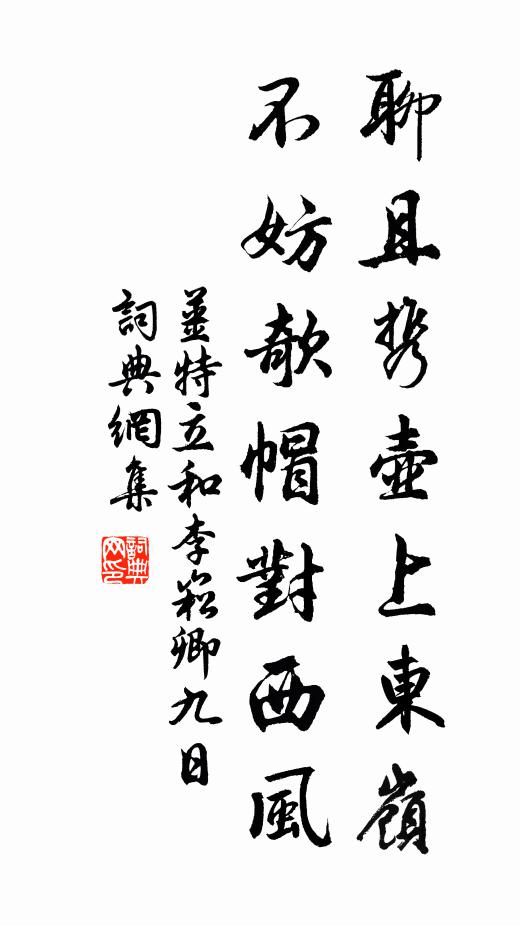 聊且携壺上東嶺
不妨欹帽對西風
姜特立和李崧卿九日
詞典網集
詞典網印